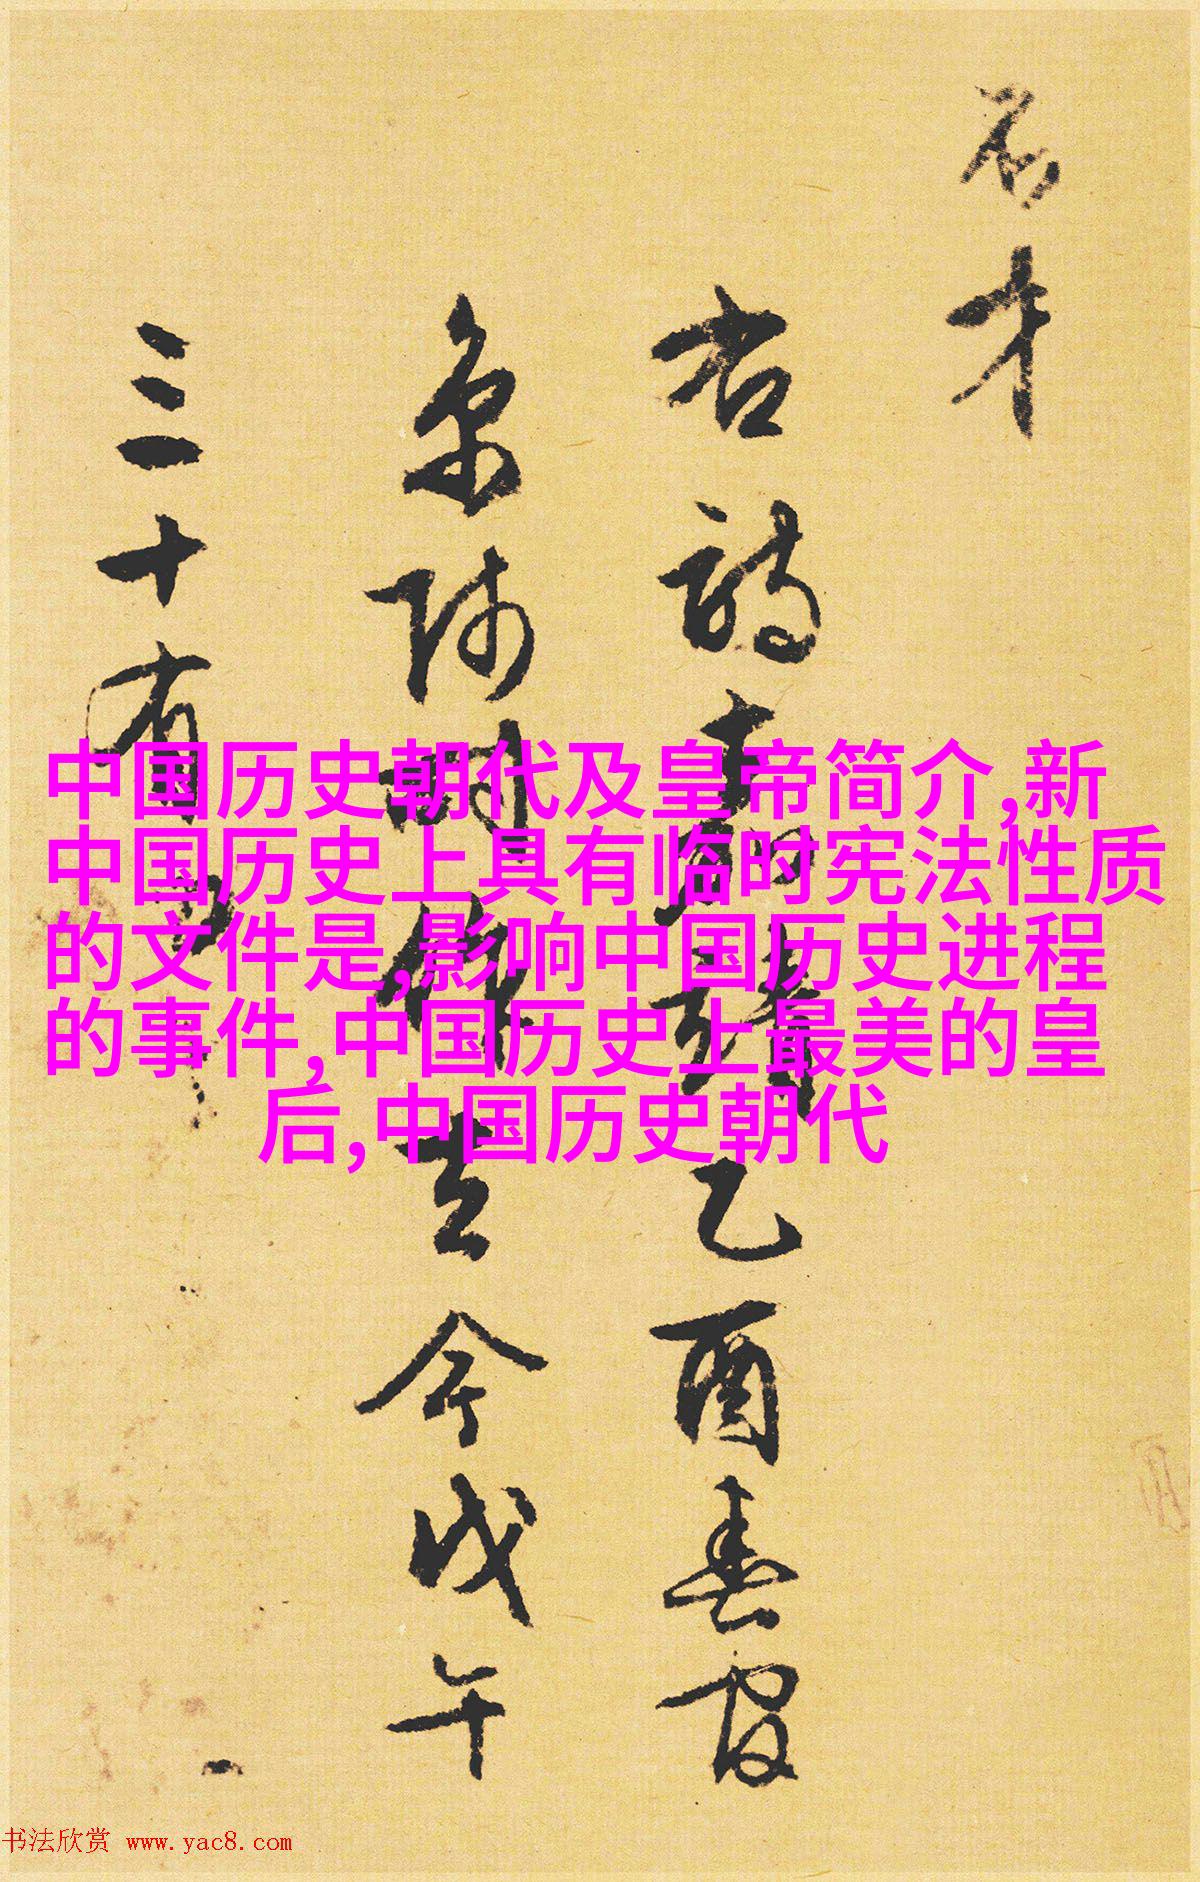 名才
右詩
乙酉春寓
京師時作去今戊午
三十有
中国历史朝代及皇帝简介,新
中国历史上具有临时宪法性质
的文件是,影响中国历史进程
的事件,中国历史上最美的皇
后,中国历史朝代
书法欣赏 www.yac8.com